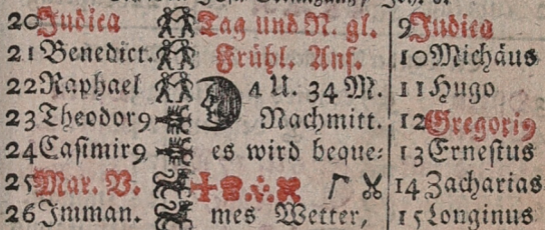 20 Judica Tag und N. gl. 9 Judica
21 Benedict. Frühl. Anf. 10 Michäus
22 Raphael 4 U. 34 M. 11 Hugo
23 Theodor9 Nachmitt. 12 Gregori9
24 Casimir9 es wird beque- 13 Ernestus
25 Mar. V. 14 Zacharias
26 Imman. mes Wetter, 15 Longinus